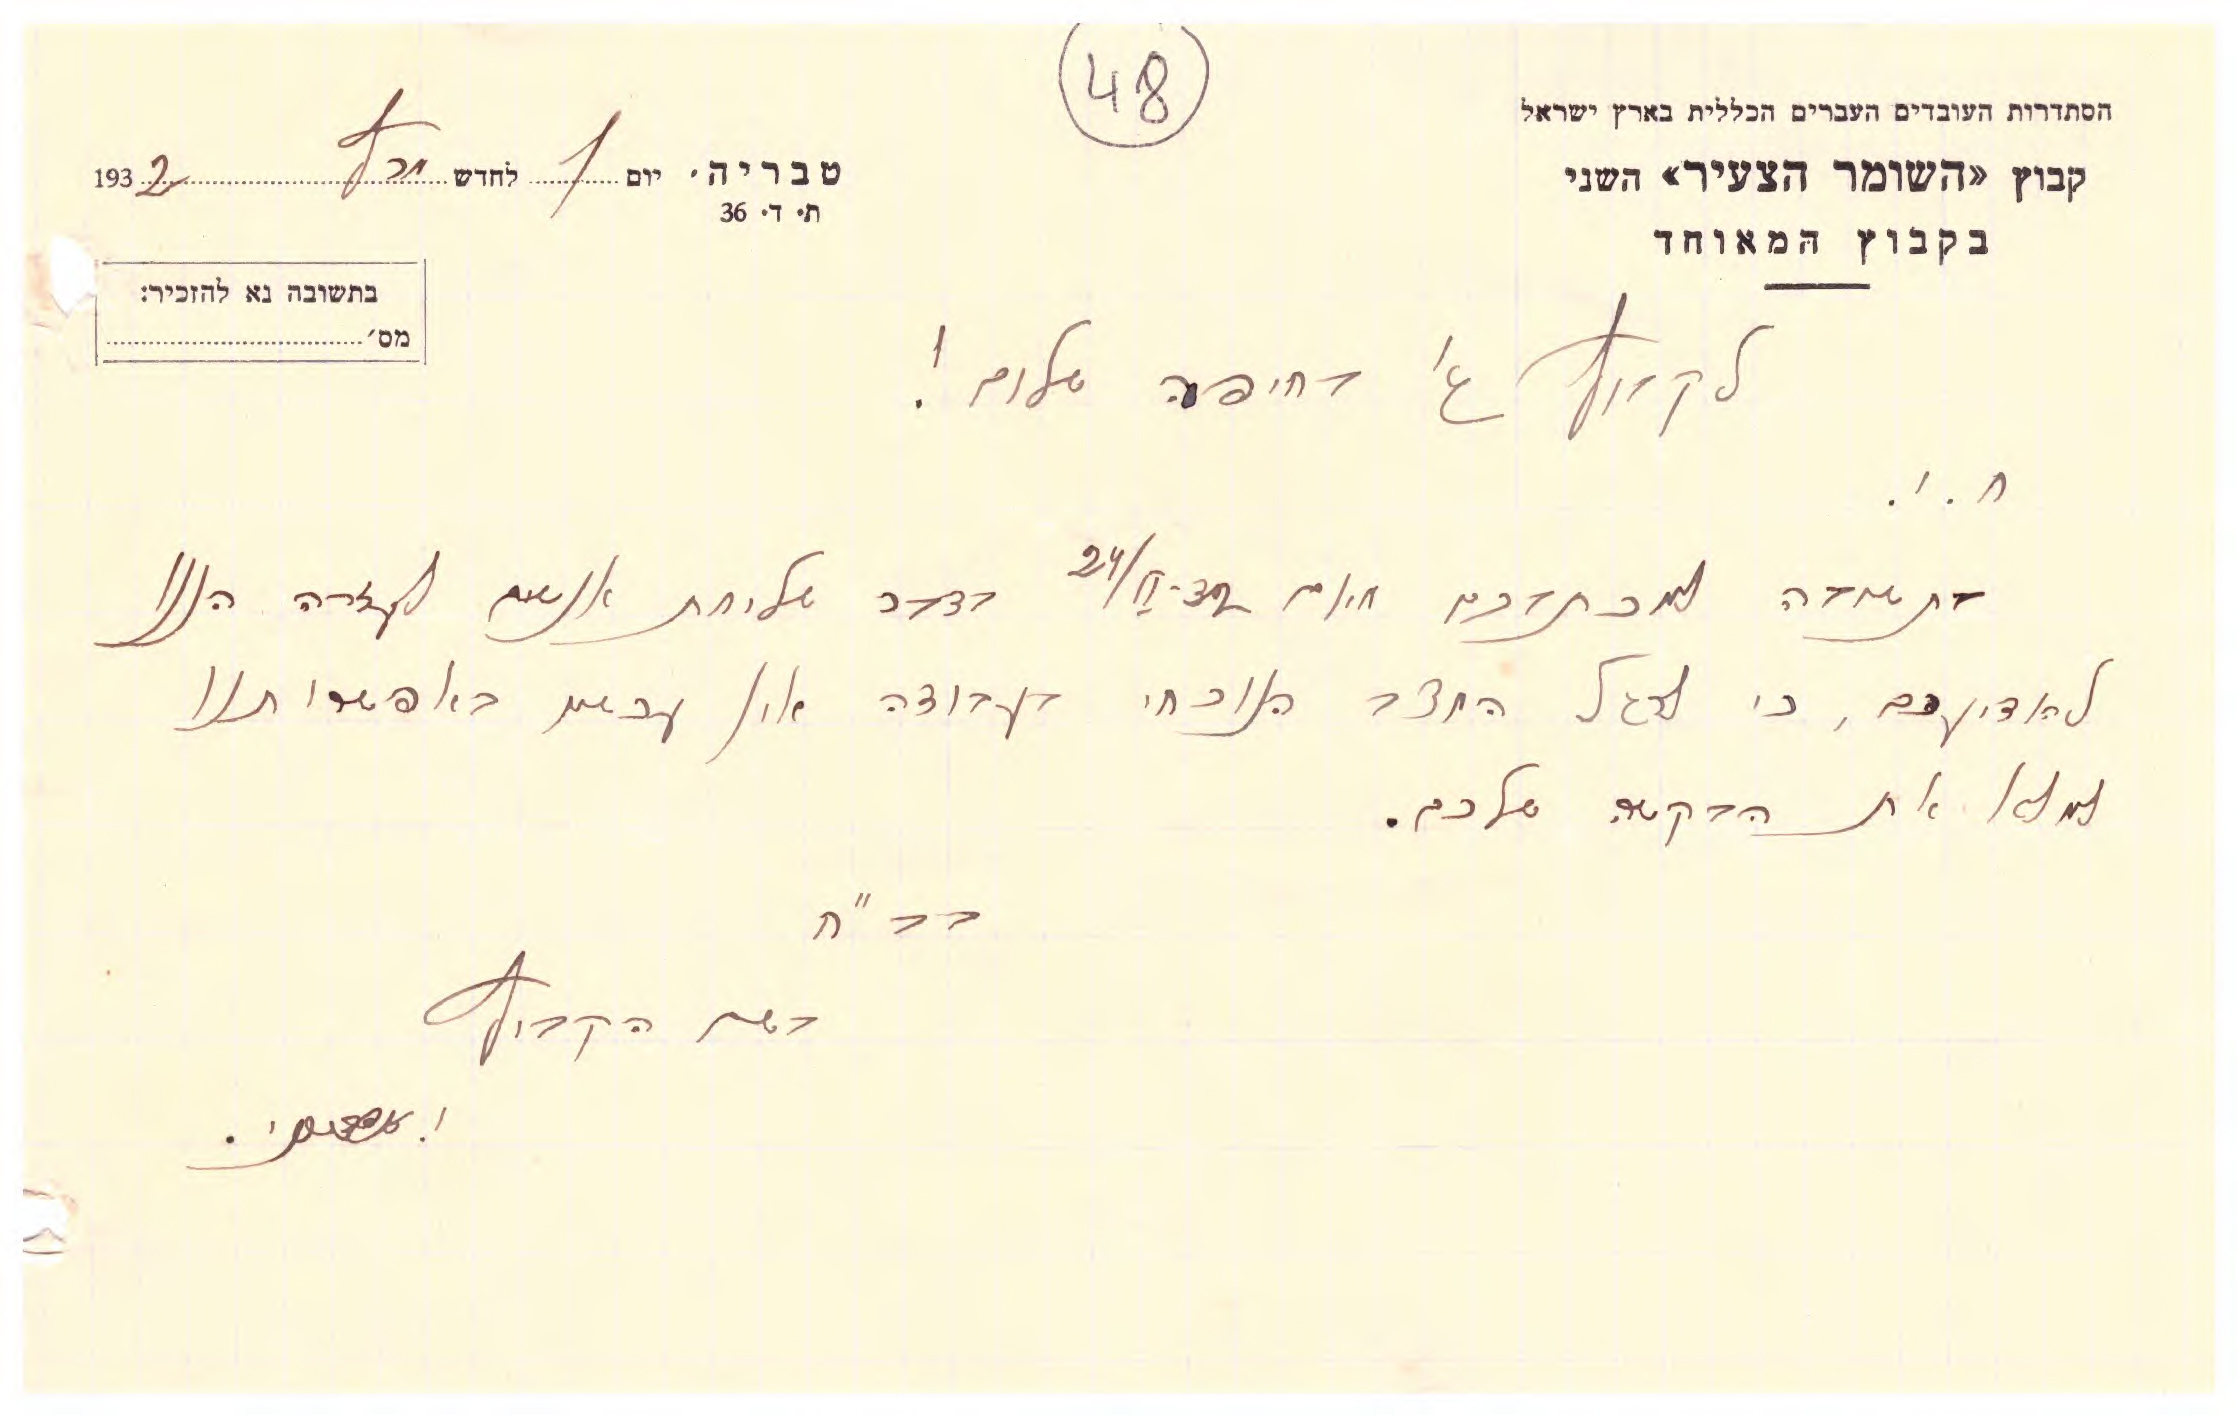 48
הסתדרות העובדים העברים הכללית בארץ ישראל
קבוץ «השומר הצעיר» השני
בקבוץ המאוחד
טבריה, יום 1 לחדש מרץ 1932
ת. ד. 36
בתשובה נא להזכיר:
מס׳
לקבוץ ג' בחיפה שלום!
ח. י.
בתשובה למכתבכם מאם 24/II בדבר שליחת אנשים לעזרה הננו
להודיעכם, כי לרגל המצב הנוכחי בעבודה אין עכשיו באפשרותנו
למלא את הבקשה שלכם.
בב"ח
בשם הקבוץ